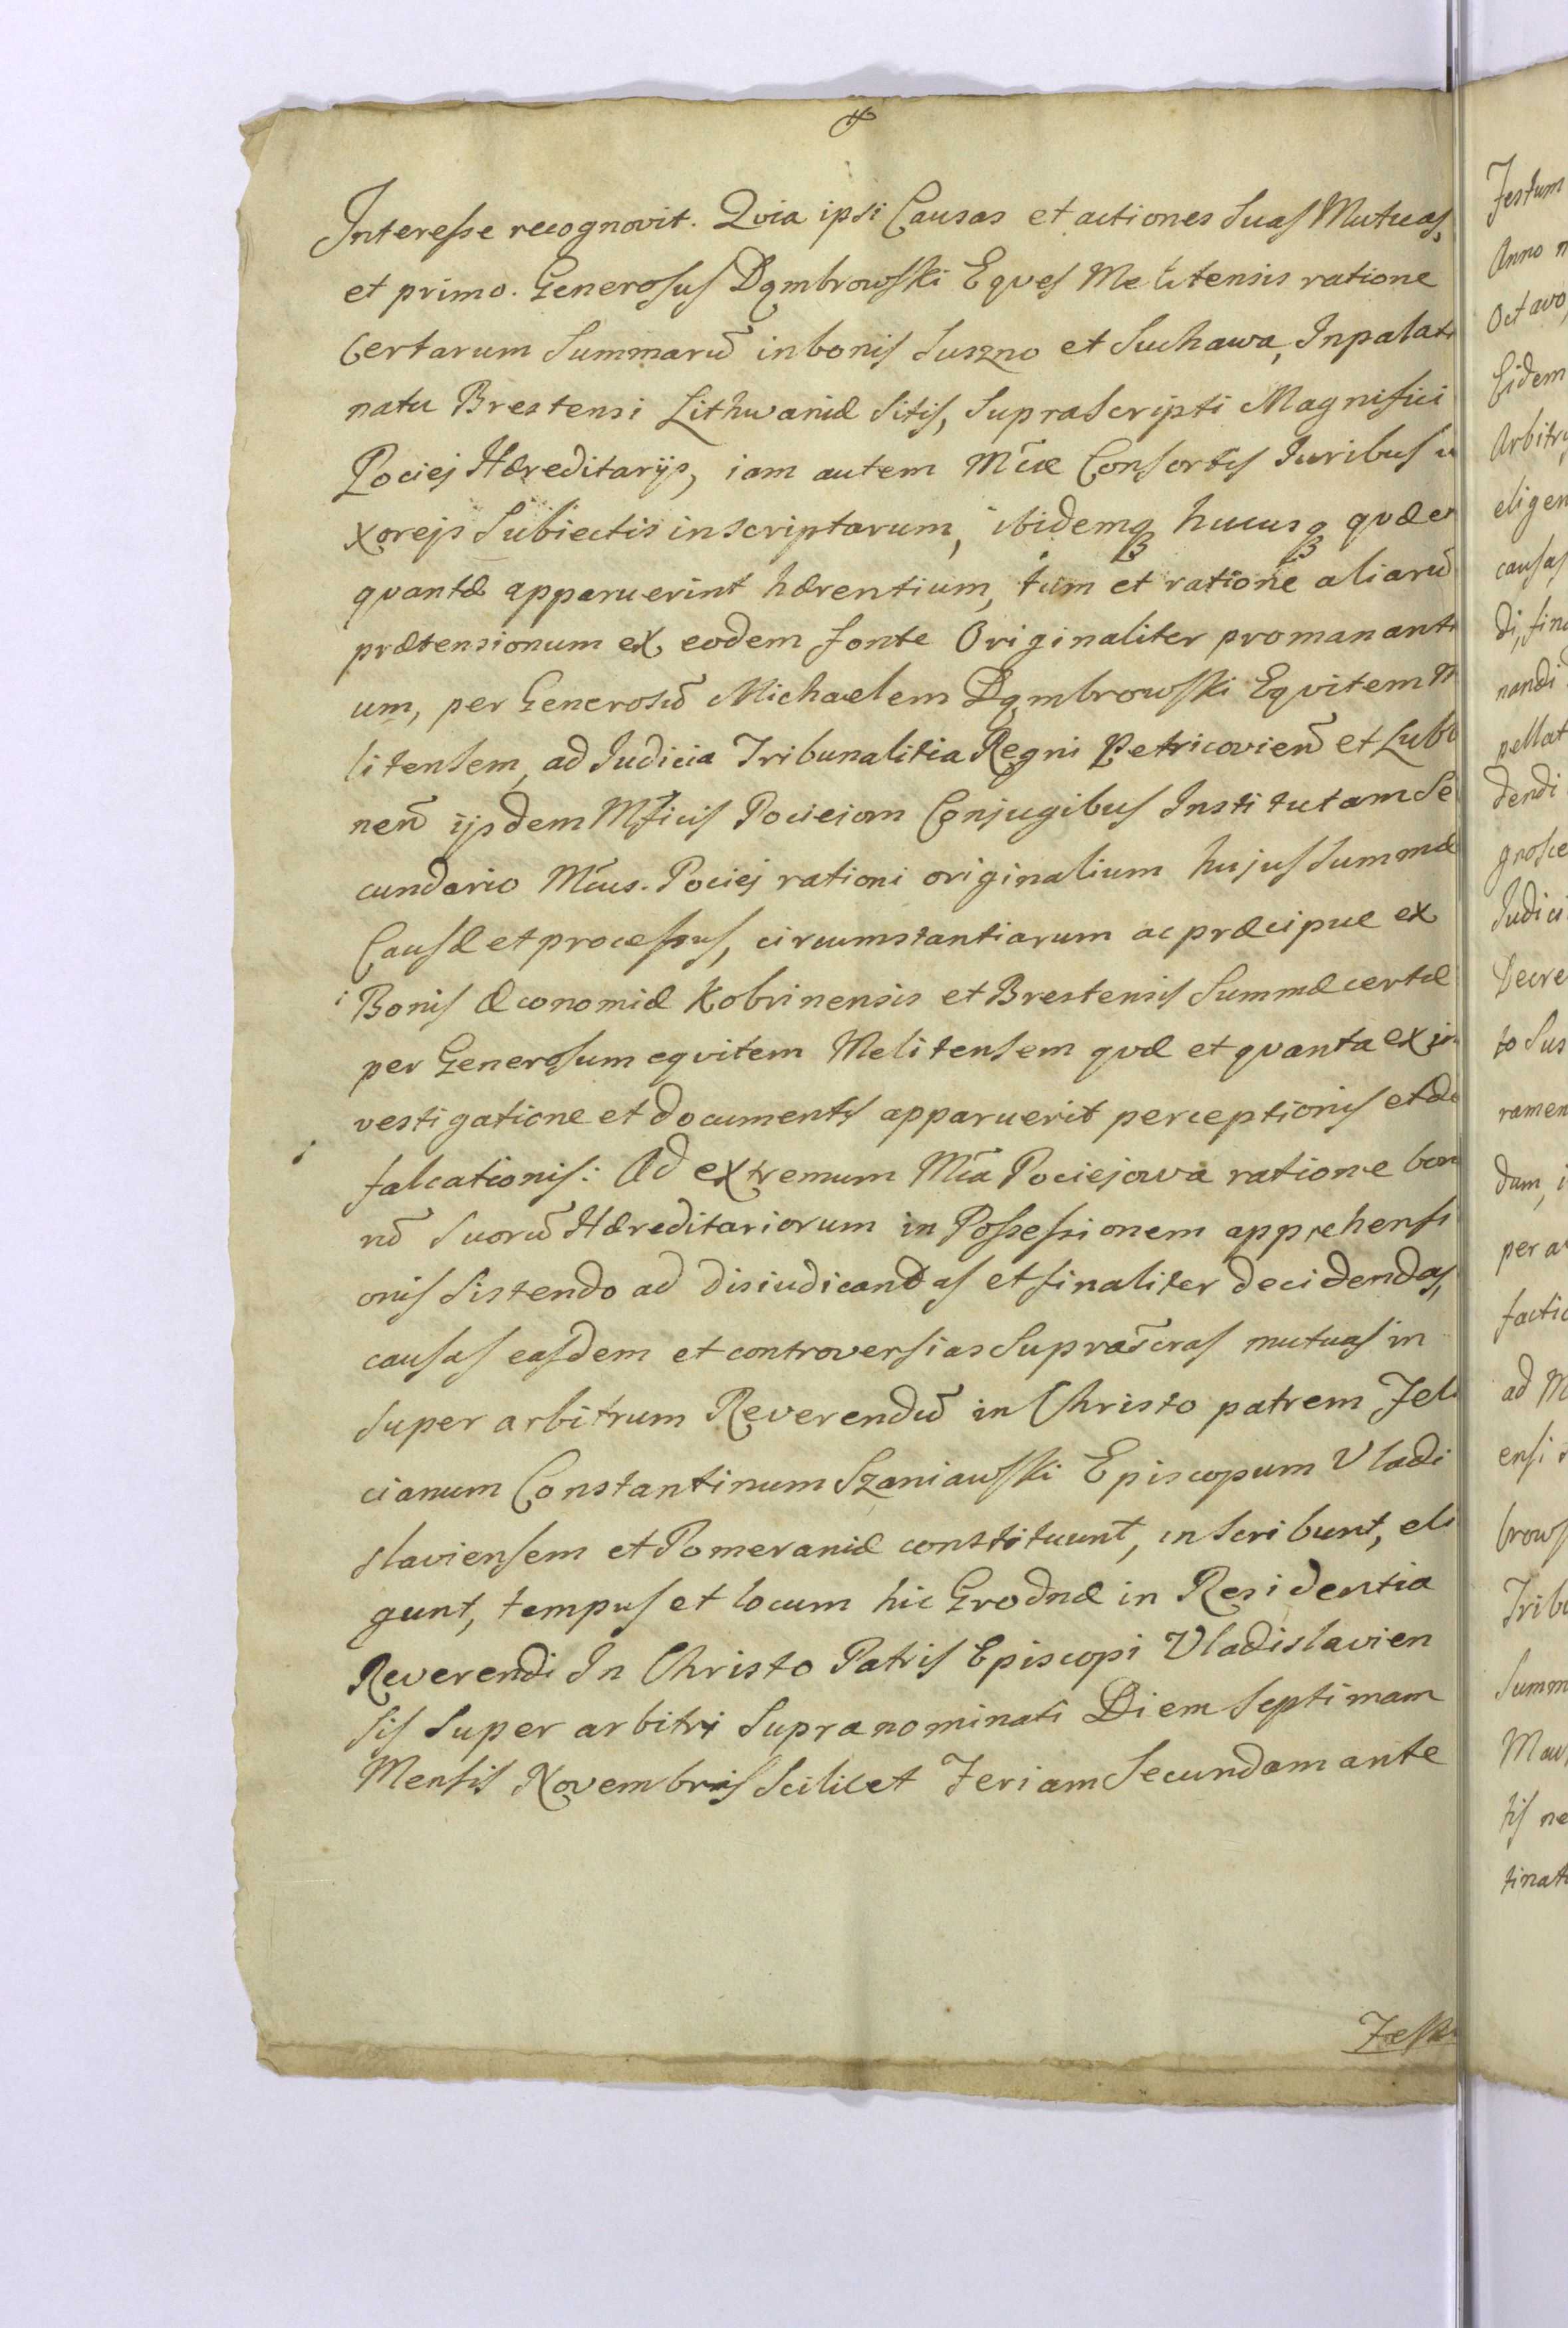 Interesse recognovit. Qvia ipsi Causas et actiones Suas Mutuas,
et primo. Generosus Dąmbrowski Eqves Melitensis ratione
Certarum Summarū in bonis Suszno et Suchawa, In palati
natu Brestensi Lithvaniæ Sitis, Suprascripti Magnifici
Pociej Hæreditarijs, iam autem Mcæ Consortis Iuribus u
xorejs Subiectis inscriptarum, ibidemq hucusq qvæ et
qvantæ apparuerint hærentium, tum et ratione aliarū
prætensionum ex eodem fonte Originaliter promananti
um, per Generosū Michaelem Dąmbrowski Eqvitem M
litensem, ad Iudicia Tribunalitia Regni Petricovien̄ et Lubli
nen̄ ijsdem Mficis Pocieiom Conjugibus Institutam Se
cundario Mcus. Pociej rationi originalium hujus Summæ
Causæ et processus, circumstantiarum ac præcipue ex
Bonis Æconomiæ Kobrinensis et Brestensis Summæ certæ
per Generosum eqvitem Melitensem qvæ et qvanta ex in
vestigatione et documentis apparuerit perceptionis et de
falcationis: Ad extremum Mca Pociejowa ratione bon
nū Suorū Hæreditariorum in Possessionem apprehensi
onis Sistendo ad disiudicandas et finaliter decidendas,
causas easdem et controversias Supras̄cras mutuas in
super arbitrum Reverendū in Christo patrem Feli
cianum Constantinum Szaniawski Episcopum Vladi
slaviensem et Pomeraniæ constituunt, inscribunt, eli
gunt, tempus et locum hic Grodnæ in Residentia
Reverendi In Christo Patris Episcopi Vladislavien
sis Super arbitri Supranominati Diem Septimam
Mensis Novembris Scilicet Feriam Secundam ante
Festu
Festum
Anno
Octavo,
Eidem
Arbitr
eligen
causas
di, fina
nandi
pellat
dendi
gnosce
Iudici
Decre
to Sus
ramen
dam, i
per a
factio
ad M
ensi
brows
Tribu
Summ
tis ne
tinat